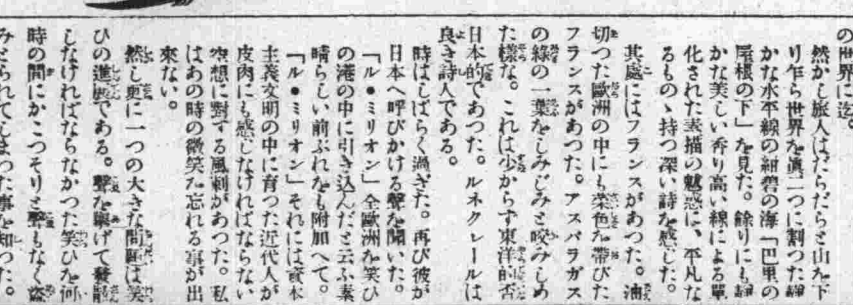 の世界に迄。
然かし旅人はだらだらと山を下
り乍ら世界を眞二つに割つた靜
かな水平線の紺碧の海「巴里の
屋根の下」を見た。餘りにも靜
かな美しい香り高い線による單
化された素描の魅惑に、平凡な
るものゝ持つ深い詩を感じた。
其處にはフランスがあつた。油
切つた歐洲の中にも染色を帶びた
フランスがあつた。アスパラガス
の綠の一葉をしみじみと咬みしめ
た樣な。これは少からず東洋的否
日本的であつた。ルネクレールは
良き詩人である。
時はしばらく過ぎた。再び彼が
日本へ呼びかける聲を聞いた。
「ル・ミリオン」全歐洲を笑ひ
の港の中に引き込んだと云ふ素
晴らしい前ぶれをも附加へて。
「ル・ミリオン」それには資本
主義文明の中に育つた近代人が
皮肉にも感じなければならない
空想に對する風刺があつた。私
はあの時の微笑を忘れる事が出
來ない。
然し更に一つの大きな問題は笑
ひの進展である。聲を擧げて發散
しなければならなかつた笑ひを何
時の間にかこつそりと聲もなく盜
みとられてしまつた事を知つた。